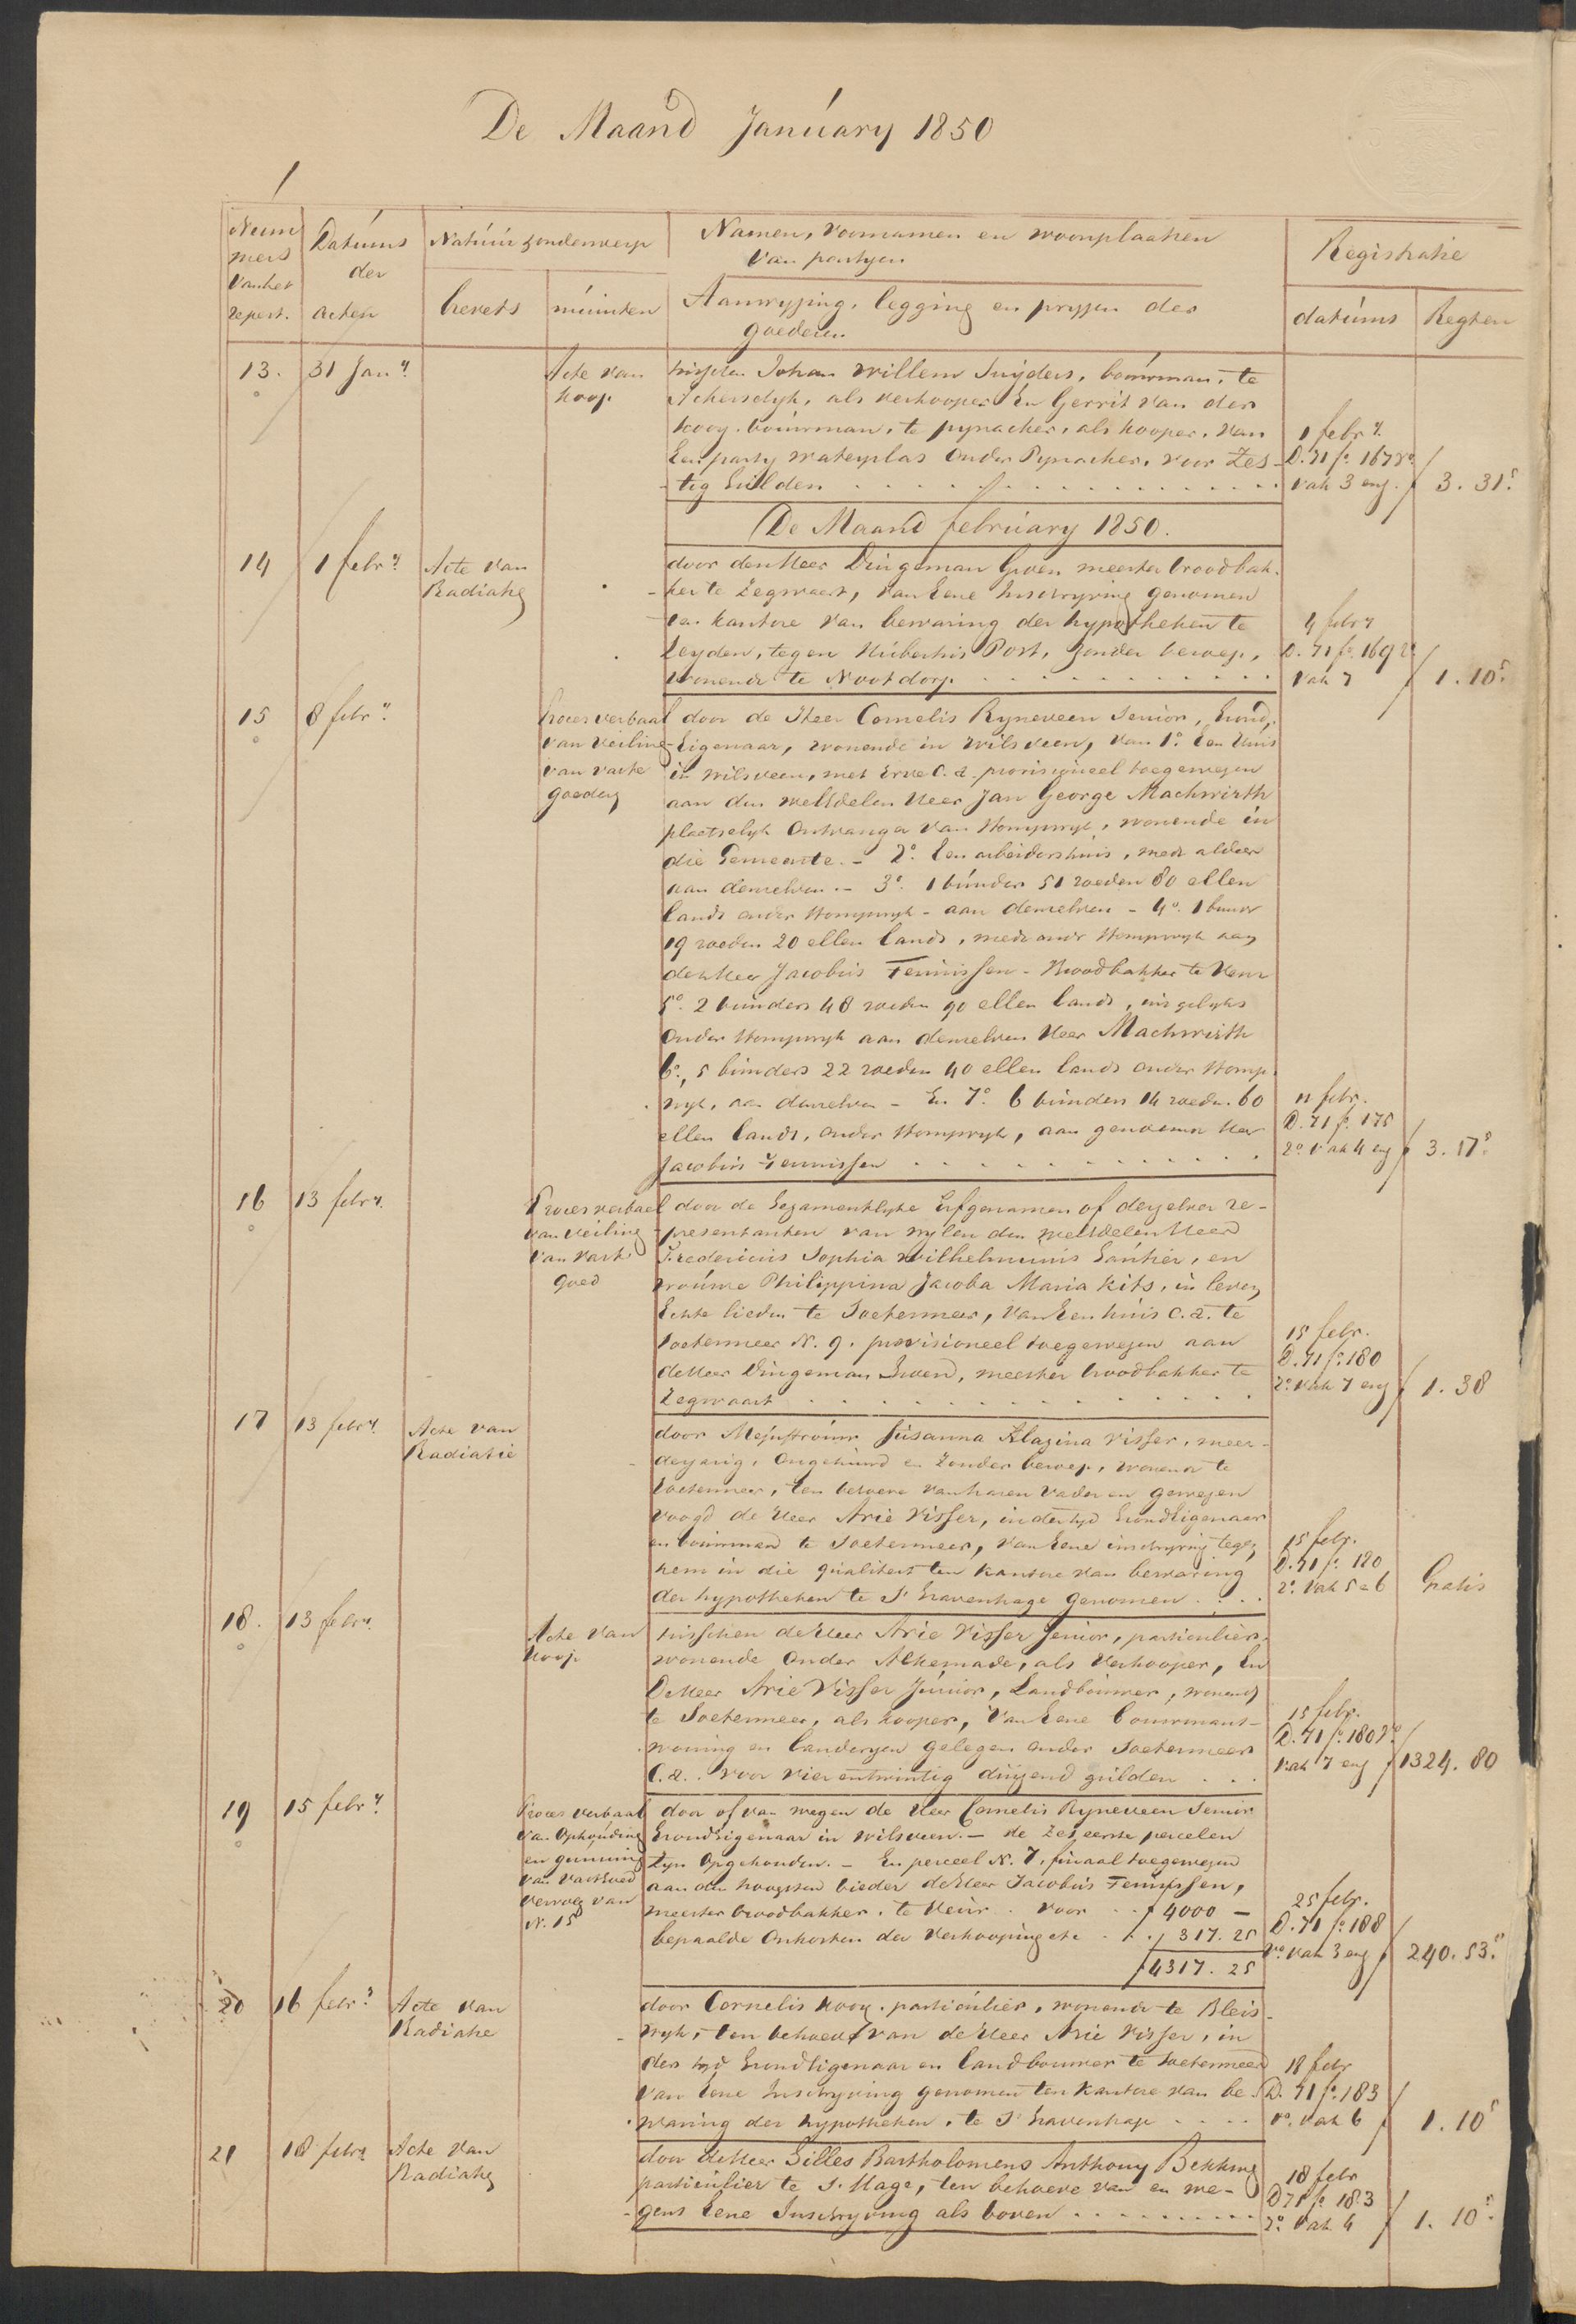 De Maand January 1850
1
Num
mers
van het
repert.
Datums
der
acten
Natuur & onderwerp
brevets
minuten
Namen, voornamen en woonplaatsen
van partyen
Aanwyzing, legging en pryzen der
goederen
Registratie
datums
Regten
13.
31 Jan.y
Acte van
koop
tusschen Johan Willem Suijders, bouwman, te
Ackersdyk, als verkooper En Gerrit van der
kooy. bouwman, te pynacker, als kooper, van
Een party waterplas onder Pynacker, voor Zes-
tig Guilden
1 febr.y
D. 71 f.o 167 v.o
vak 3 eng.
3. 31.5
De Maand february 1850.
14
1 febr.y
Acte van
Radiatie
door den Heer Dingeman Groen meester broodbak-
ker te Zegwaart, van Eene Inschryving genomen
ten kantore van bewaring der hypotheken te
Leyden, tegen Huibertus Post, zonder beroep,
wonende te Nootdorp
4 febr.y
D. 71 f.o 169 v.o
vak 7
1. 10.5
15
8 febr.y
Procesverbaal
van veiling
van vaste
goederen
door de Heer Cornelis Ryneveen Senior, Grond-
Eigenaar, wonende in Wilsveen, van 1.o Een Huis
in Wilsveen, met Erve C. a. provisioneel toegewezen
aan den WelEdelen Heer Jan George Machwirth
plaetselyk Ontvanger van Stompwyk, wonende in
die Gemeente. - 2.o Een arbeidershuis, mede aldaar
aan denzelven. - 3.o 1 bunder 51 roeden 80 ellen
Lands onder Stompwyk - aan denzelven - 4.o 1 bunder
19 roeden 20 ellen Lands, mede onder Stompwyk aan
den Heer Jacobus Teunissen - Broodbakker te Veur
5.o 2 bunders 48 roeden 90 ellen Lands, insgelyks
onder Stompwyk aan denzelven Heer Machwirth
6.o, 5 bunders 22 roeden 40 ellen Lands onder Stomp-
wyk, aan denzelven - En 7.o 6 bunders 14 roeden 60
ellen Lands, onder Stompwyk, aan genoemde Heer
Jacobus Teunissen
11 febr.
D. 71 f.o 175
2.o vak 4 eng
3. 17.5
16
13 febr.y
Procesverbaal
van veiling
van vast
goed
door de Gezamentlyke Erfgenamen of derzelver re-
presentanten van wylen den WelEdelen Heer
Fredericus Sophia Wilhelmunis Gautier, en
vrouwe Philippina Jacoba Maria Kits, in leven
Echte lieden te Soetermeer, van Een huis C. a. te
Soetermeer N. 9. provisioneel toegewezen aan
de Heer Dingeman Groen, meester broodbakker te
Zegwaart
15 febr.
D. 71 f.o 180
2.o vak 7 eng
1. 38
17
13 febr.y
Acte van
Radiatie
door Mejuffrouw Susanna Klazina Visser, meer-
derjarig, Ongehuwd en Zonder beroep, wonende te
Soetermeer, ten behoeve van haren Vader en gewezen
Voogd de Heer Arie Visser, in der tyd GrondEigenaar
en bouwman te Soetermeer, van Eene inschryving tegen
hem in die qualiteit ten kantore van bewaring
der hypotheken te S' Gravenhage genomen
15 febr.
D. 71 f.o 180
2.o vak 5 a 6
Gratis
18.
13 febr.y
Acte van
koop
tusschen de Heer Arie Visser Senior, particulier,
wonende onder Alkemade, als Verkooper, En
De Heer Arie Visser Junior, Landbouwer, wonende
te Soetermeer, als kooper, van Eene bouwmans-
woning en Landeryen gelegen onder Soetermeer
C. a. voor vier entwintig duizend gulden
15 febr.
D. 71 f.o 180 v.o
vak 7 eng
1324. 80
19
15 febr.y
Proces verbaal
van Ophouding
en gunning
van vastgoed
vervolg van
N. 15
door of van wegen de Heer Cornelis Ryneveen Senior
GrondEigenaar in Wilsveen. - de Zes eerste percelen
Zyn Opgehouden. - En perceel N. 7, finaal toegewezen
aan den hoogsten bieder de Heer Jacobus Teunissen,
meester broodbakker, te Veur. voor f 4000 -
bepaalde Onkosten der Verkooping etc f 317. 25
f 4317. 25
25 febr.
D. 71 f.o 188
v.o vak 3 eng
240. 53.5
20
16 febr.y
Acte van
Radiatie
door Cornelis Kooy. particulier, wonende te Bleis-
wyk, ten behoeve van de Heer Arie Visser, in
der tyd GrondEigenaar en Landbouwer te Soetermeer
van Eene Inschryving genomen ten kantore van be-
waring der hypotheken, te S' Gravenhage
18 febr
D. 71 f.o 183
v.o vak 6
1. 10 5
21
18 febr.y
Acte van
Radiatie
door de Heer Gilles Bartholomeus Anthony Bekking
particulier te S. Hage, ten behoeve van en we-
gens Eene Inschryving als boven
18 febr
D 71 f.o 183
2.o vak 4
1. 10.5